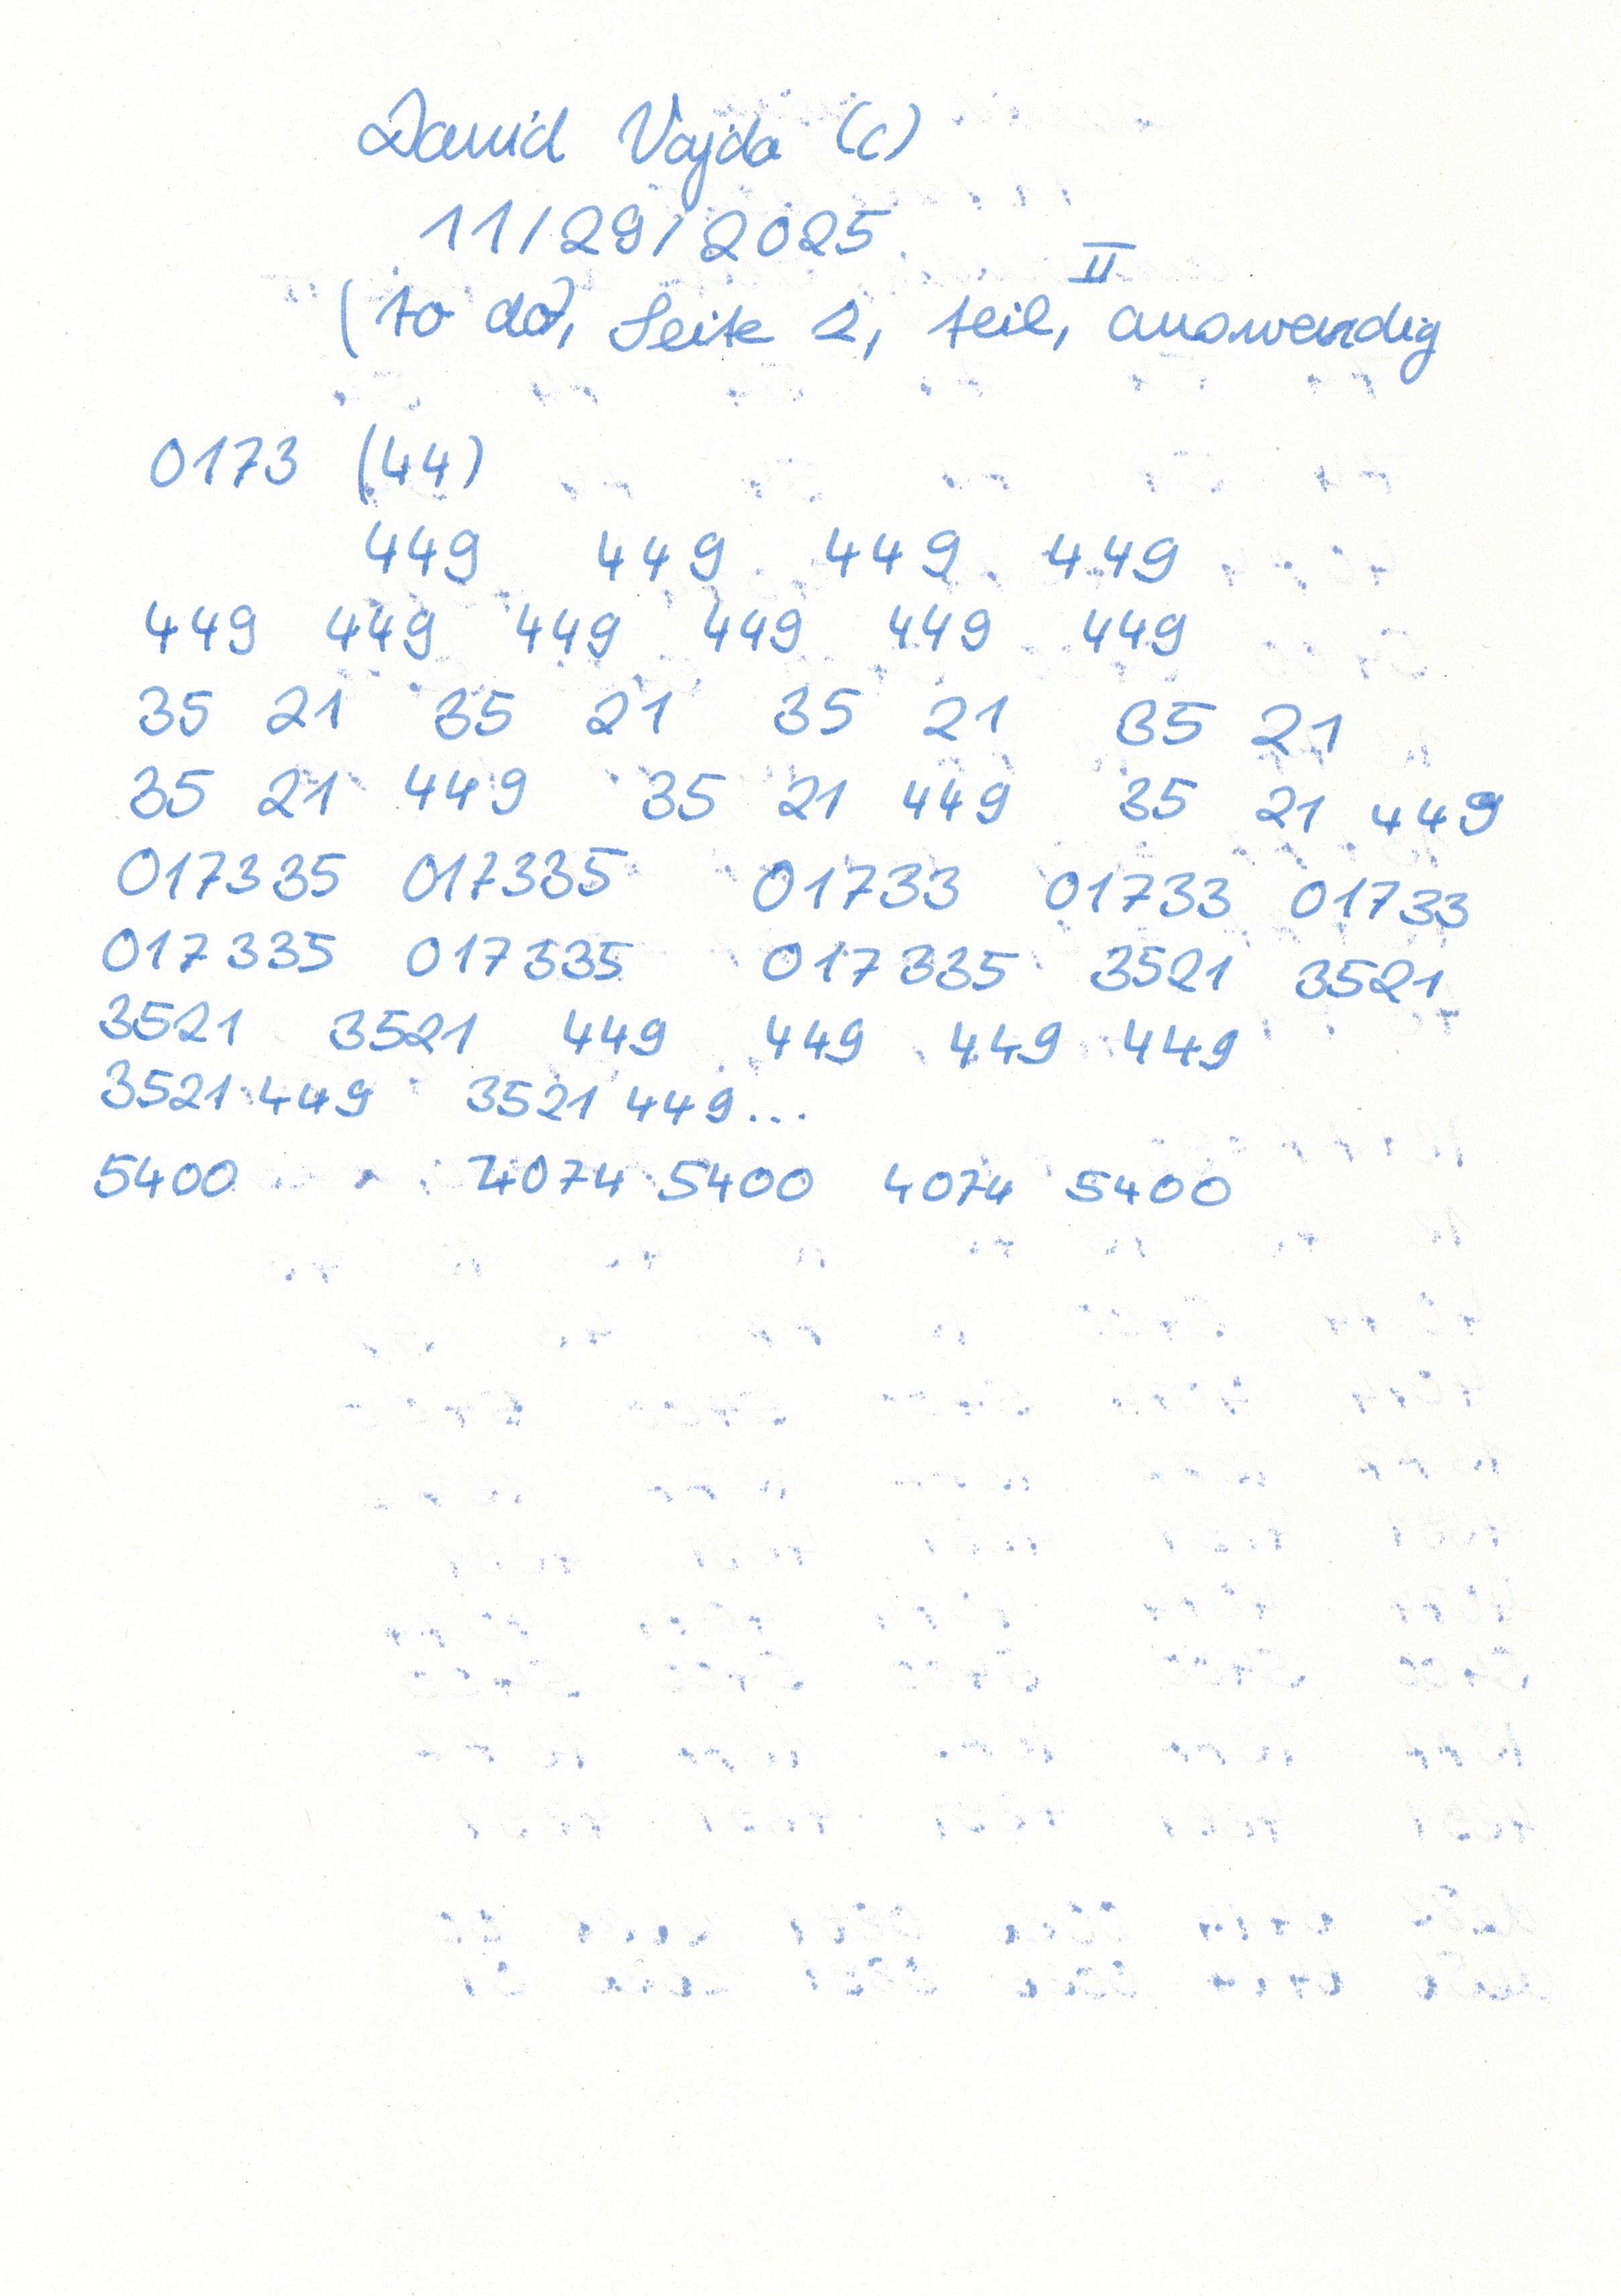 David Vajda (c)
11/29/2025
II
(to do), Seite 2, teil, auswendig
0173 (44)
449 449 449 449
449 449 449 449 449 449
35 21 35 21 35 21 35 21
35 21 449 35 21 449 35 21 449
017335 017335 01733 01733 01733
017335 017335 017335 3521 3521
3521 3521 449 449 449 449
3521 449 3521 449...
5400 4074 5400 4074 5400